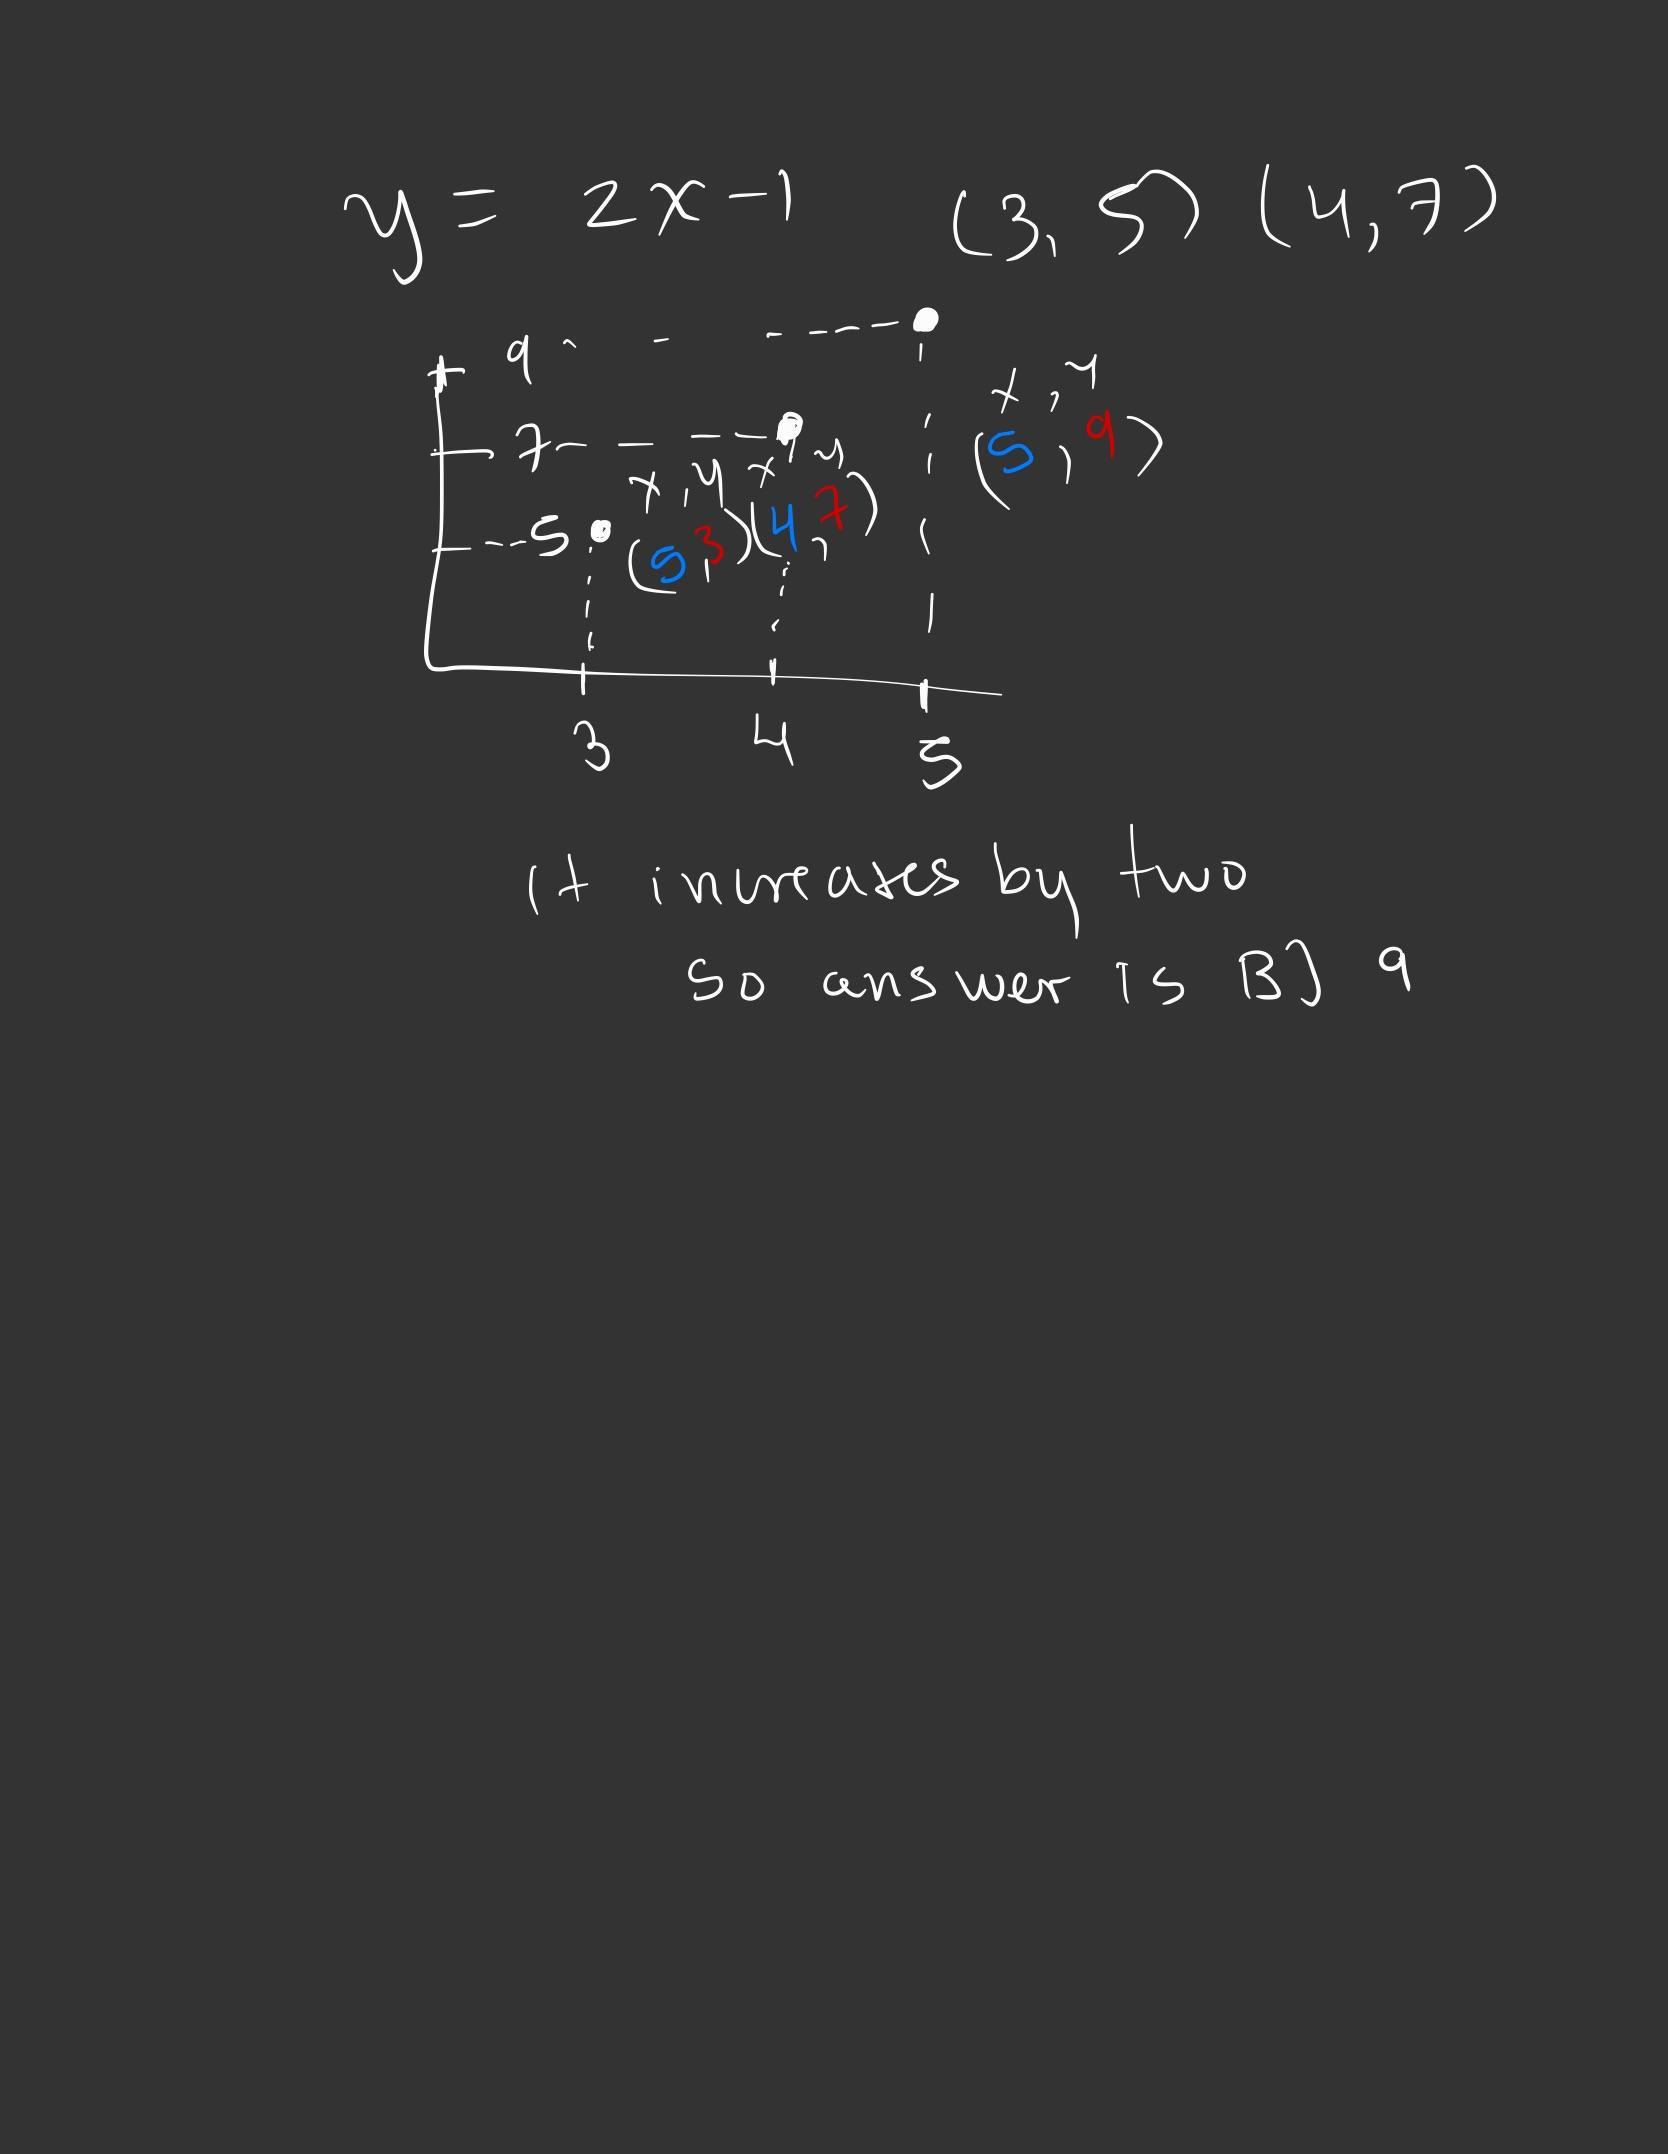 y = 2x-1 (3, 5) (4, 7)
9
x, y
7
(5, 9)
x, y x, y
5
(5, 3) (4, 7)
3 4 5
it increases by two
so answer is B) 9